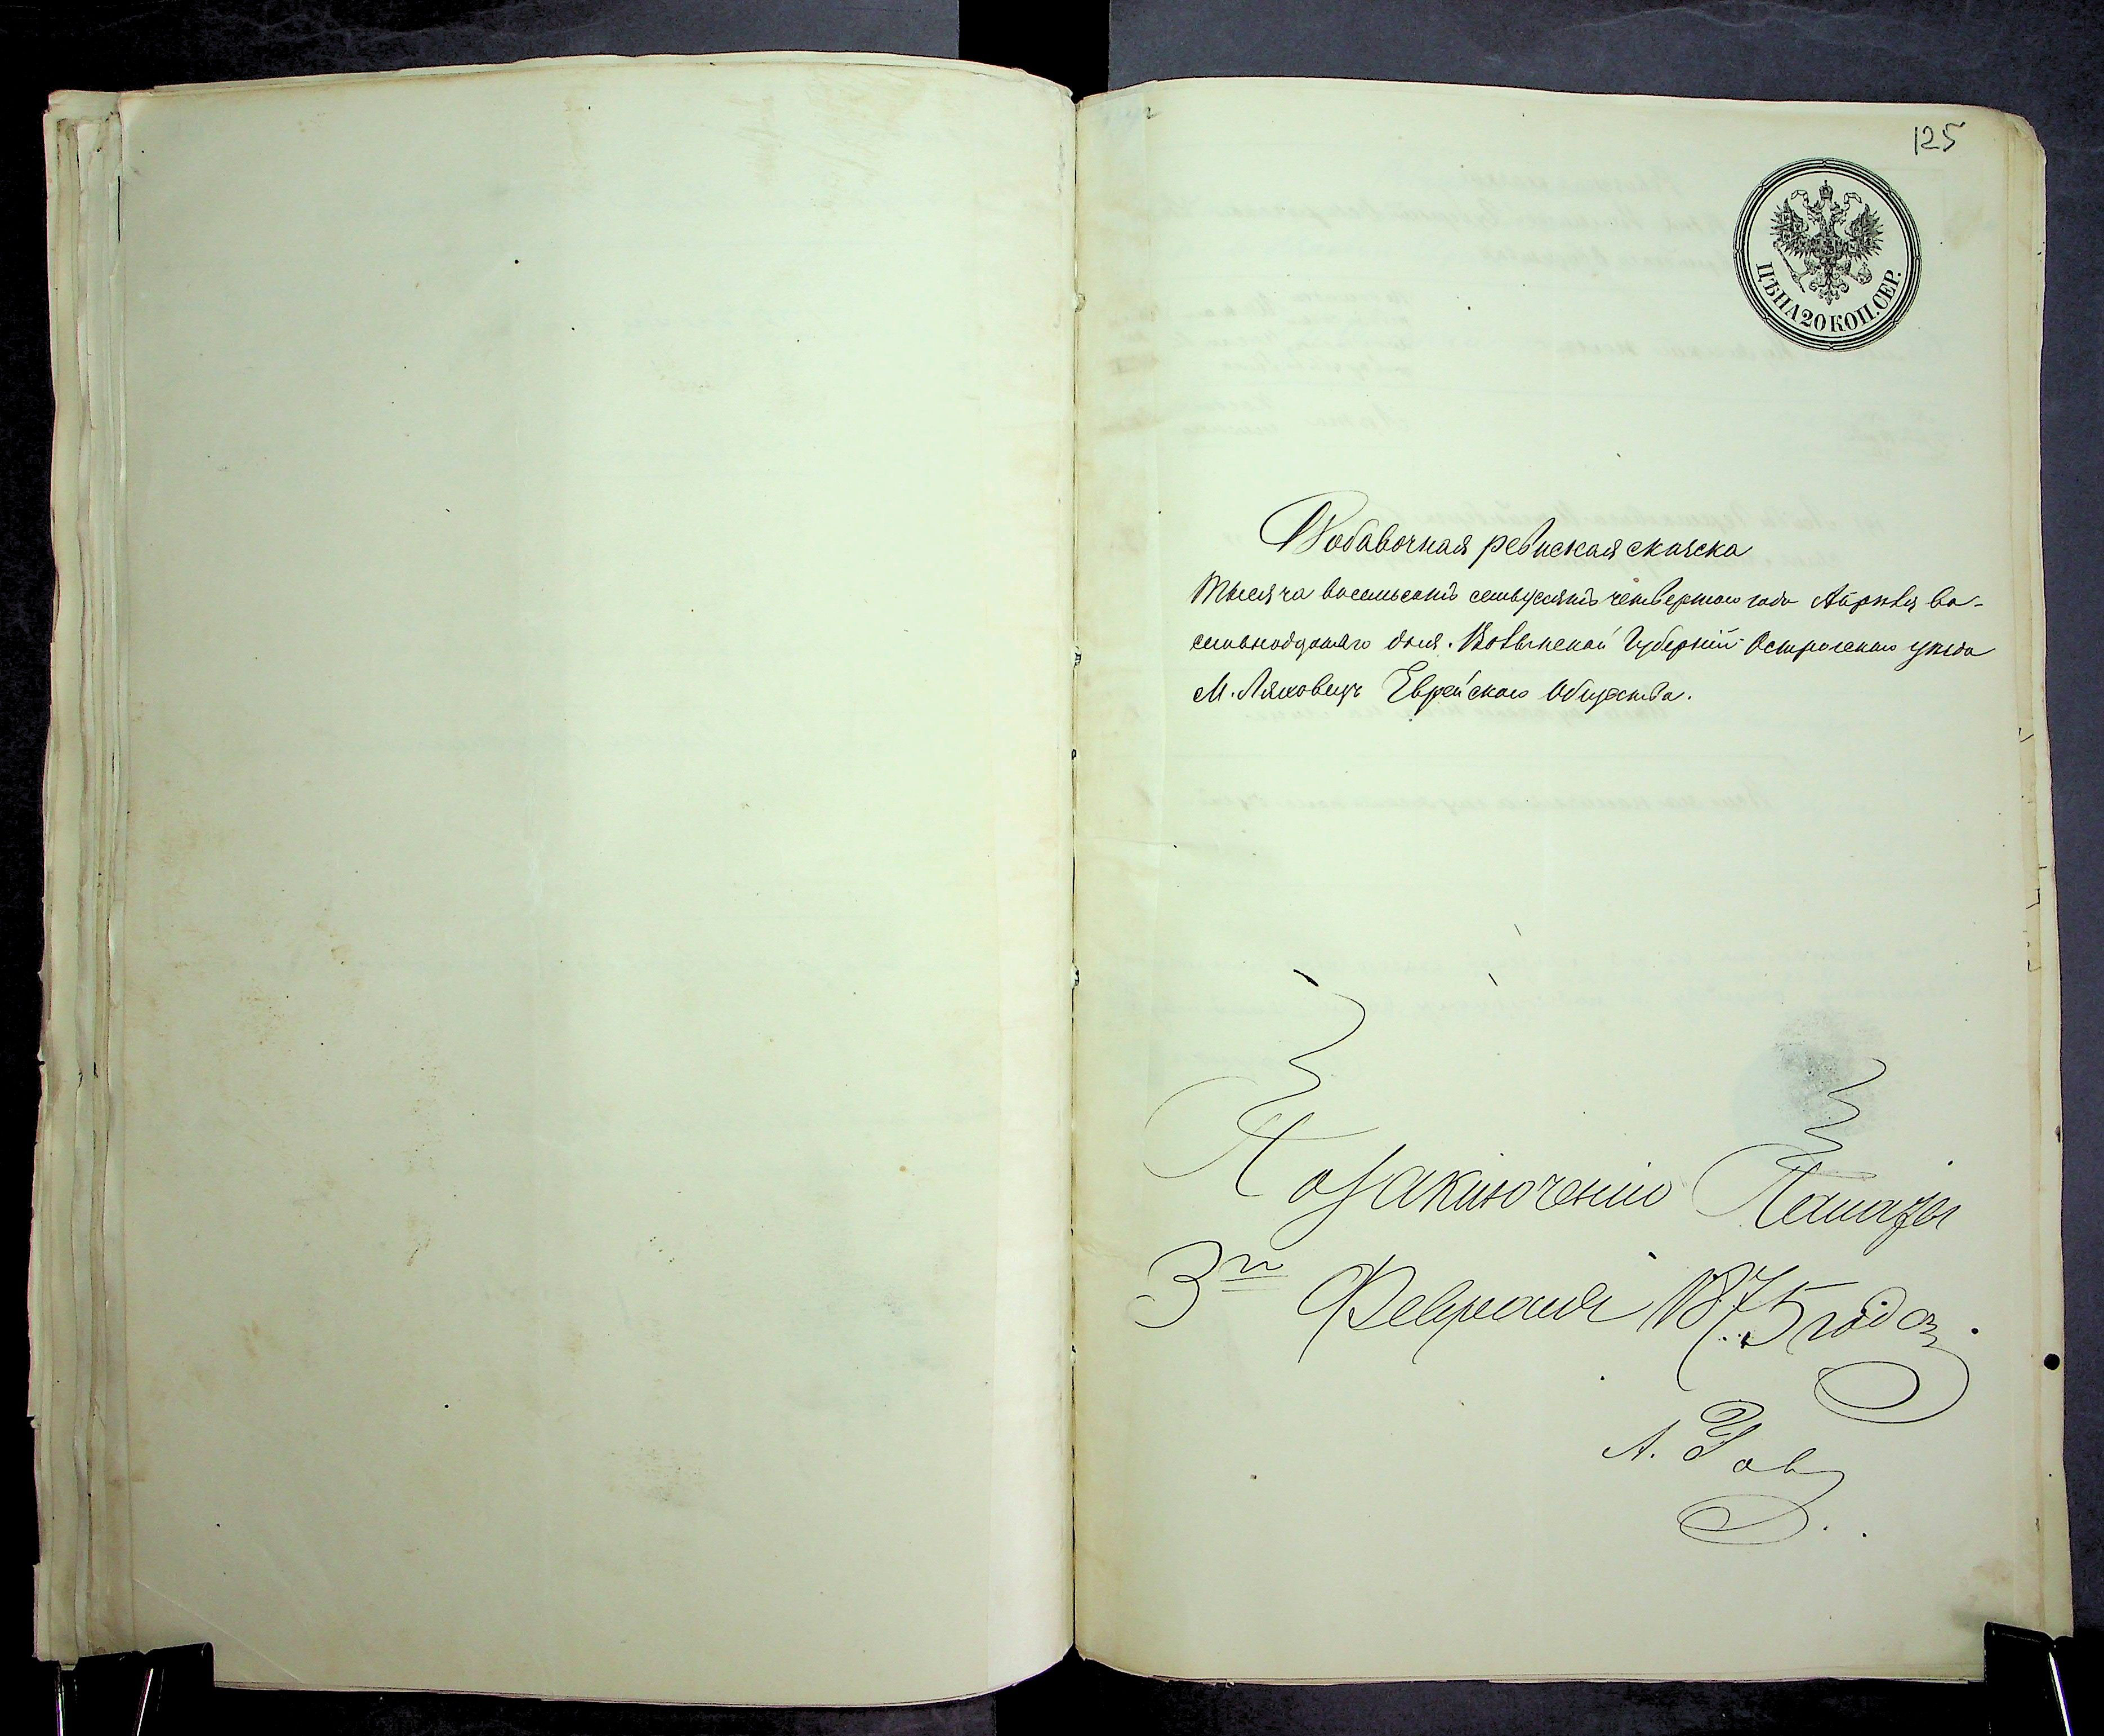 125
ЦѢНА 20 КОП. СЕР.
Добавочная ревиская скаска
Тысяча восемьсотъ семьдесятъ четвертого года Апрѣля во-
семнодцатаго дня. Волынской Губерніи Острогского уѣзда
М. Ляховецъ Еврейскаго Общества.
По заключенію Палаты
3го Февраля 1875 года.
А.